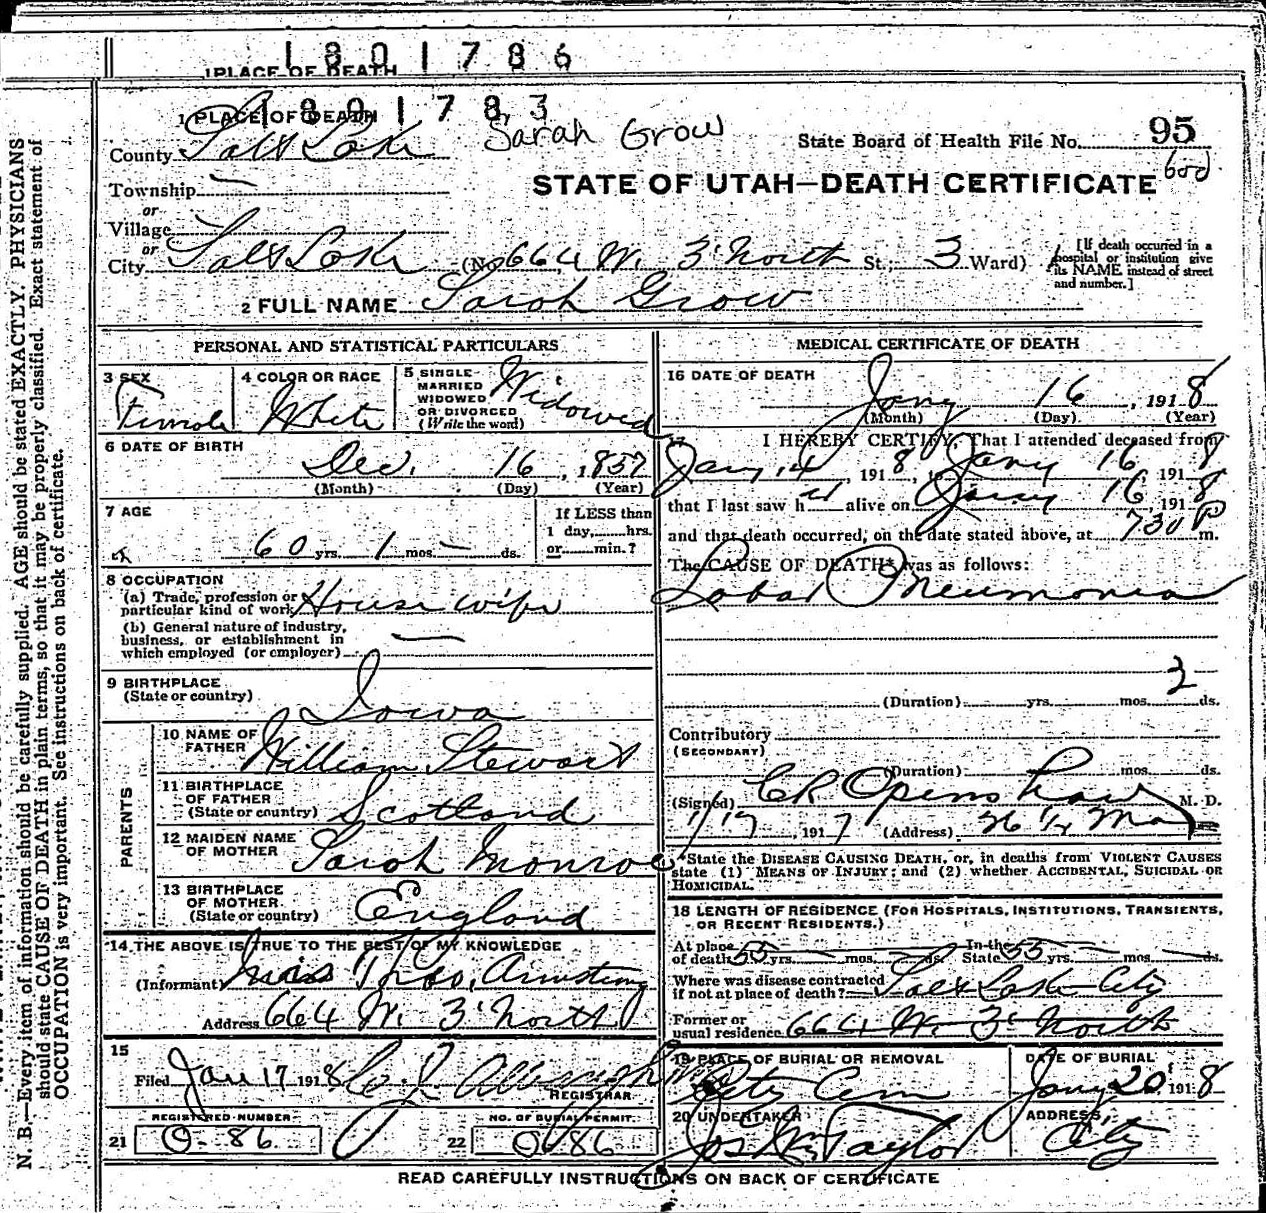 1801786
1 PLACE OF DEATH
1801783
1 PLACE OF DEATH
Sarah Grow
County Salt Lake
State Board of Health File No. 95
Township —
STATE OF UTAH—DEATH CERTIFICATE
or
Village
or
City Salt Lake (No. 664 W. 3' North St.; 3 Ward)
[If death occurred in a
hospital or institution give
its NAME instead of street
and number.]
2 FULL NAME Sarah Grow
PERSONAL AND STATISTICAL PARTICULARS
3 SEX
Female
4 COLOR OR RACE
White
5 SINGLE
MARRIED
WIDOWED
OR DIVORCED
(Write the word)
Widowed
6 DATE OF BIRTH
Dec. 16, 1857
(Month) (Day) (Year)
7 AGE
60 yrs. 1 mos. — ds.
If LESS than
1 day,......hrs.
or......min.?
8 OCCUPATION
(a) Trade, profession or
particular kind of work House wife
(b) General nature of industry,
business, or establishment in
which employed (or employer) —
9 BIRTHPLACE
(State or country)
Iowa
PARENTS
10 NAME OF
FATHER
William Stewart
11 BIRTHPLACE
OF FATHER
(State or country)
Scotland
12 MAIDEN NAME
OF MOTHER
Sarah Monroe
13 BIRTHPLACE
OF MOTHER
(State or country)
England
14 THE ABOVE IS TRUE TO THE BEST OF MY KNOWLEDGE
(Informant) Thos. Armstrong
Address 664 W. 3' North
15
Filed Jan 17 1918
REGISTRAR
REGISTERED NUMBER
21 O-86
NO. OF BURIAL PERMIT
22 O-86
MEDICAL CERTIFICATE OF DEATH
16 DATE OF DEATH
Jany 16, 1918
(Month) (Day) (Year)
17 I HEREBY CERTIFY, That I attended deceased from
Jany 14, 1918, Jany 16 1918
that I last saw h alive on Jany 16 1918
and that death occurred, on the date stated above, at 730 P m.
The CAUSE OF DEATH* was as follows:
Lobar Pneumonia
(Duration) yrs. mos. 3 ds.
Contributory
(SECONDARY)
(Duration) mos. ds.
(Signed) CR Openshaw M. D.
1/17, 1917 (Address)
*State the DISEASE CAUSING DEATH, or, in deaths from VIOLENT CAUSES
state (1) MEANS OF INJURY; and (2) whether ACCIDENTAL, SUICIDAL OR
HOMICIDAL.
18 LENGTH OF RESIDENCE (FOR HOSPITALS, INSTITUTIONS, TRANSIENTS,
OR RECENT RESIDENTS.)
At place
of death 55 yrs. — mos. — ds. In the
State 55 yrs. — mos. — ds.
Where was disease contracted
if not at place of death? Salt Lake City
Former or
usual residence 664 W. 3' North
19 PLACE OF BURIAL OR REMOVAL
City Cem
DATE OF BURIAL
Jany 20 1918
20 UNDERTAKER
Jos Wm Taylor
ADDRESS
City
READ CAREFULLY INSTRUCTIONS ON BACK OF CERTIFICATE
N. B.—Every item of information should be carefully supplied. AGE should be stated EXACTLY. PHYSICIANS
should state CAUSE OF DEATH in plain terms, so that it may be properly classified. Exact statement of
OCCUPATION is very important. See instructions on back of certificate.